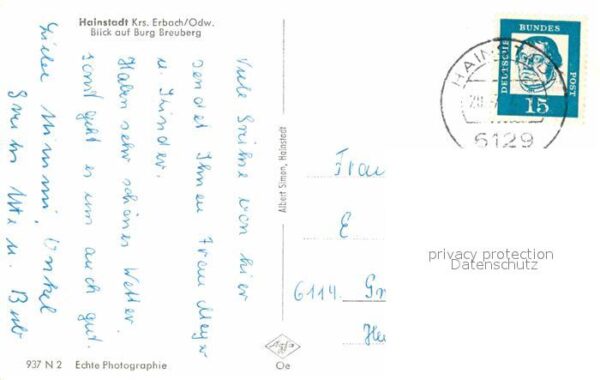 Hainstadt Krs. Erbach/Odw.
Blick auf Burg Breuberg
Viele Grüße von hier
sendet Ihnen Frau Mayer
u. Kinder.
Habn sehr schönes Wetter.
sonst geht es uns auch gut.
Liebe Mimmi, Onkel
Albert Simon, Hainstadt
937 N 2 Echte Photographie
Oe
DEUTSCHE
BUNDES
POST
15
6129
Frau
E
6114 Gr
privacy protection
Datenschutz